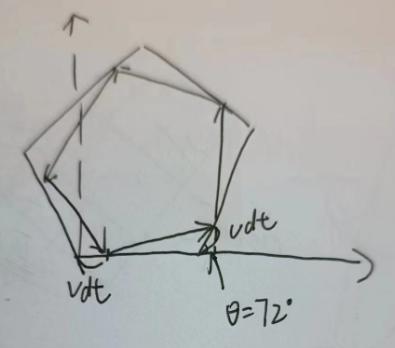 vdt
vdt
θ=72°